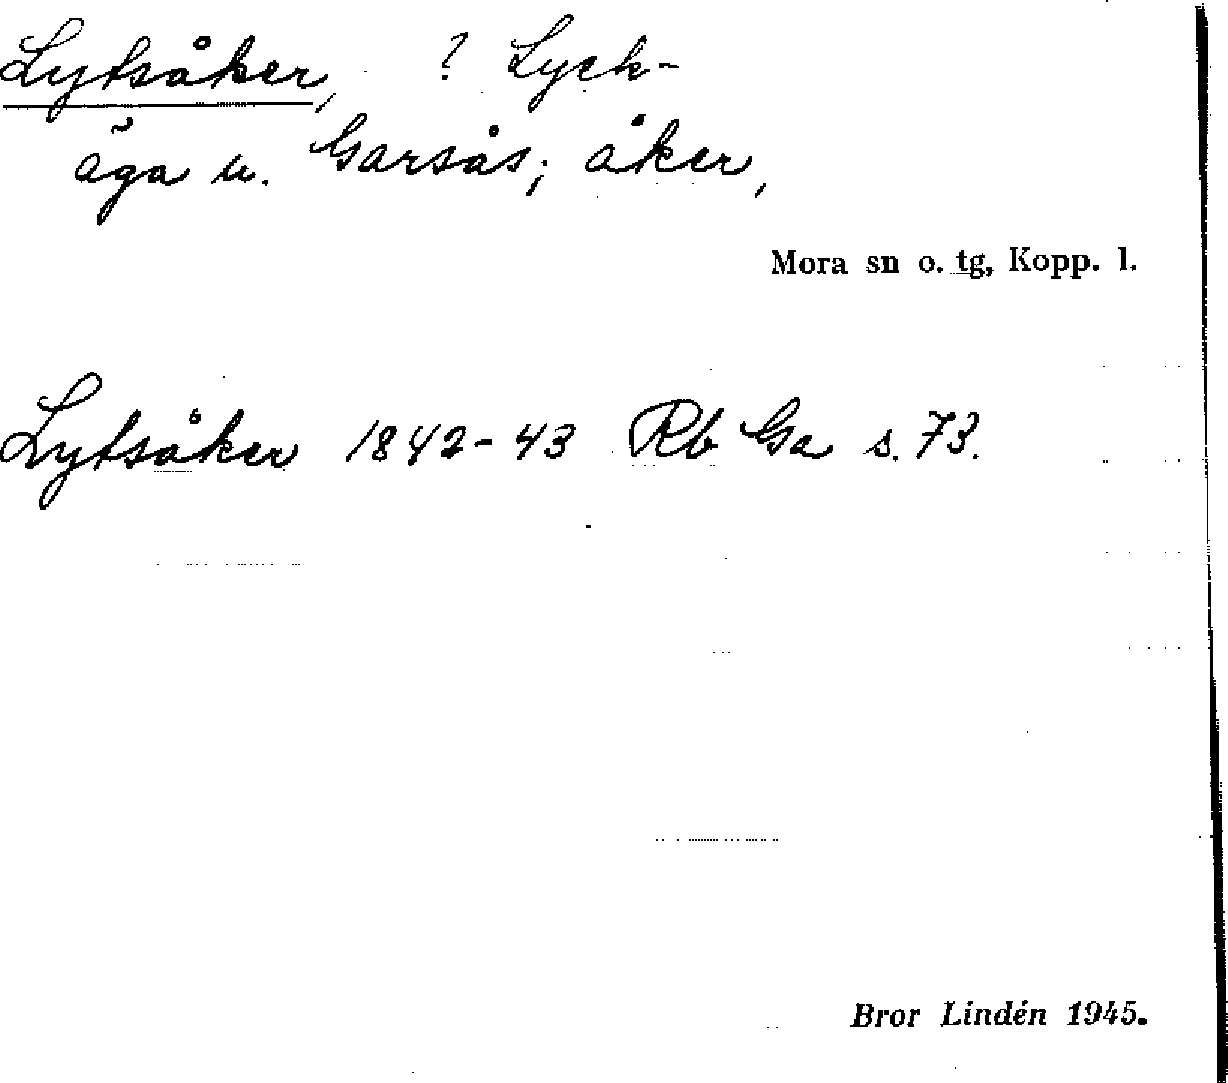 Lytsåker, ? Lyck-
äga u. Garsås; åker,
Mora sn o. tg, Kopp. l.
Lytsåker 1842-43 Rb Ga s. 73.
Bror Lindén 1945.